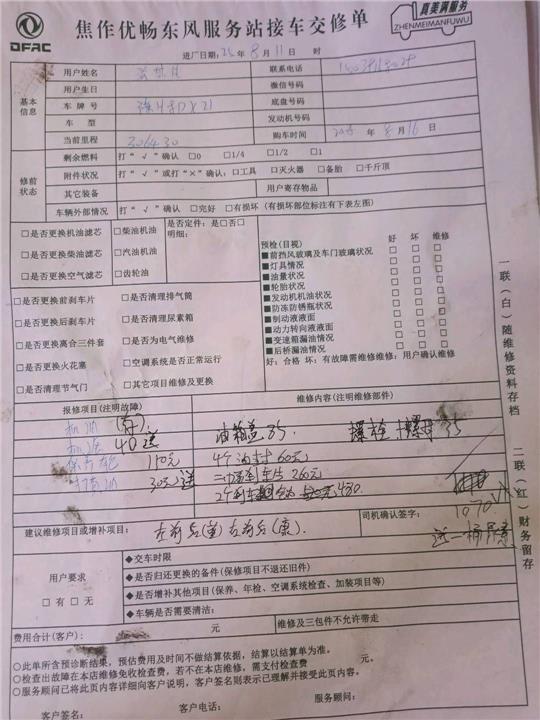 DFAC
焦作优畅东风服务站接车交修单
真美满服务
ZHENMEIMANFUWU
进厂日期: 年 8 月 11 日 时
基本信息
用户姓名
联系电话
用户生日
微信号码
车 牌 号
底盘号码
车 型
发动机号码
当前里程 306430
购车时间 年 8 月 16 日
修前状态
剩余燃料 打“√”确认 □0 □1/4 □1/2 □1
附件状况 打“√”或打“×”确认:□工具 □灭火器 □备胎 □千斤顶
其它装备
用户寄存物品
车辆外部情况 打“√”确认 □完好 □有损坏 (有损坏部位标注有下表左图)
□是否更换机油滤芯 □柴油机油
□是否更换柴油滤芯 □汽油机油
□是否更换空气滤芯 □齿轮油
是否定件: 是□否□
明细:
□是否更换前刹车片 □是否清理排气筒
□是否更换后刹车片 □是否清理尿素箱
□是否更换离合三件套 □是否为电气维修
□是否更换火花塞 □空调系统是否正常运行
□是否清理节气门 □其它项目维修及更换
预检(目视) 好 坏 维修
■前挡风玻璃及车门玻璃状况 □ □ □
■灯具情况 □ □ □
■油量状况 □ □ □
■轮胎状况 □ □ □
■发动机机油状况 □ □ □
■防冻防锈瓶状况 □ □ □
■制动液液面 □ □ □
■动力转向液液面 □ □ □
■变速箱漏油情况 □ □ □
■后桥漏油情况 □ □ □
好:合格 坏:有故障需维修维修:用户确认维修
报修项目(注明故障)
维修内容(注明维修部件)
机油
40 送
油箱盖 35 螺栓 螺母 35
150元
4个油封 60元
30元 送
260元
430
1070
建议维修项目或增补项目:
司机确认签字:
送一桶尿素
用户要求
□ 有 □ 无
◆交车时限
◆是否归还更换的备件(保修项目不退还旧件)
◆是否增补其他项目(保养、年检、空调系统检查、加装项目等)
◆车辆是否需要清洁:
费用合计(客户): 元
维修及三包件不允许带走
○此单所含预诊断结果,预估费用及时间不做结算依据,结算以结算单为准。
○检查出故障在本店维修免收检查费,若不在本店维修,需支付检查费 元。
○服务顾问已将此页内容详细向客户说明,客户签名则表示已理解并接受此页内容。
客户签名: 客户电话: 服务顾问:
一联(白)随维修资料存档
二联(红)财务留存